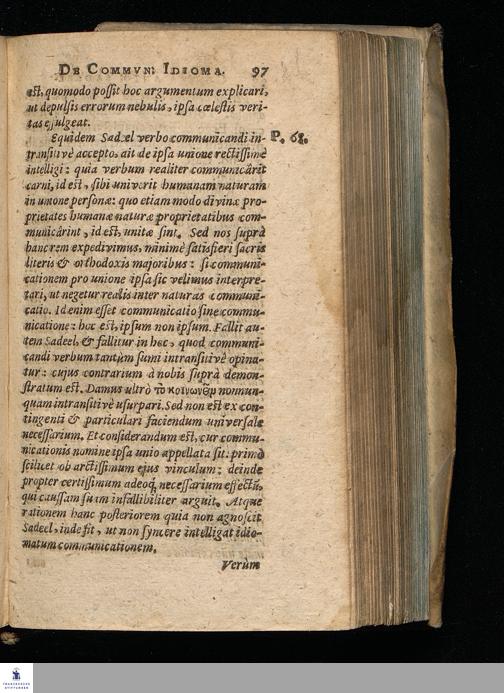 DE COMMVN: IDIOMA. 97
est, quomodo possit hoc argumentum explicari,
ut depulsis errorum nebulis, ipsa cœlestis veri-
tas effulgeat.
Equidem Sadeel verbo communicandi in-
transitivè accepto, ait de ipsa unione rectissimè
intelligi: quia verbum realiter communicârit
carni, id est, sibi univerit humanam naturam
in unione personæ: quo etiam modo divinæ pro-
prietates humanæ naturæ proprietatibus com-
municârint, id est, unitæ sint. Sed nos suprà
hanc rem expedivimus, minimè satisfieri sacris
literis & orthodoxis majoribus: si communi-
cationem pro unione ipsa sic velimus interpre-
tari, ut negetur realis inter naturas communi-
catio. Id enim esset communicatio sine commu-
nicatione: hoc est, ipsum non ipsum. Fallit au-
tem Sadeel, & fallitur in hoc, quod communi-
candi verbum tantùm sumi intransitivè opina-
tur: cujus contrarium à nobis suprà demon-
stratum est. Damus ultrò τὸ κοινωνεῖν nonnun-
quam intransitivè usurpari. Sed non est ex con-
tingenti & particulari faciendum universale
necessarium. Et considerandum est, cur commu-
nicationis nomine ipsa unio appellata sit: primò
scilicet ob arctissimum ejus vinculum: deinde
propter certissimum adeoq; necessarium effectũ,
qui caussam suam infallibiliter arguit. Atque
rationem hanc posteriorem quia non agnoscit
Sadeel, inde fit, ut non syncere intelligat idio-
matum communicationem.
Verùm
P. 68.
FRANCKESCHE
STIFTUNGEN